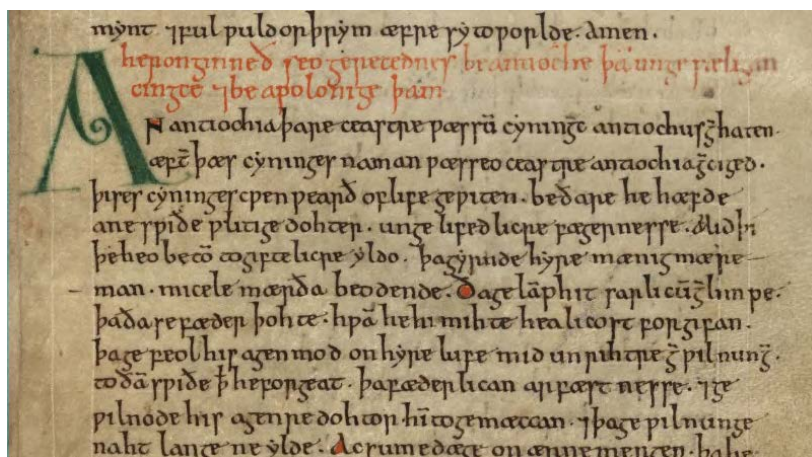 mynt ⁊ ful ƿuldorþrym æfre sy to ƿorlde. Amen.
Her onginneð seo gerecednes be antioche þā ungesæligan
cingce ⁊ be apolonige þam
AN antiochia þare ceastre ƿæs sū cyningc antiochus g̅haten.
æft̅ þæs cyninges naman ƿæs seo ceastre antiochia g̅ciged.
þises cyninges cƿen ƿearð of life geƿiten. be ðare he hæfde
ane sƿiðe ƿlitige dohter. ungelifedlicre fægernesse. Mid þi
þe heo becō to giftelicre yldo. þa gyrnde hyre mænig mære
man. micele mærða beodende. Ða gelāp hit sarlicū g̅limpe.
þa ða se fæder þohte. hƿā he hi mihte healicost forgifan.
þa gefeol his agen mod on hyre lufe mid unrihtre g̅ƿilnung̅.
to ðā sƿiðe ꝥ he forgeat. þa fæderlican arfæstnesse. ⁊ ge
ƿilnode his agenre dohtor hī to gemæccan. ⁊ þa geƿilnunge
naht lange ne ylde. Ac sume dæge on ærne mergen. þa he